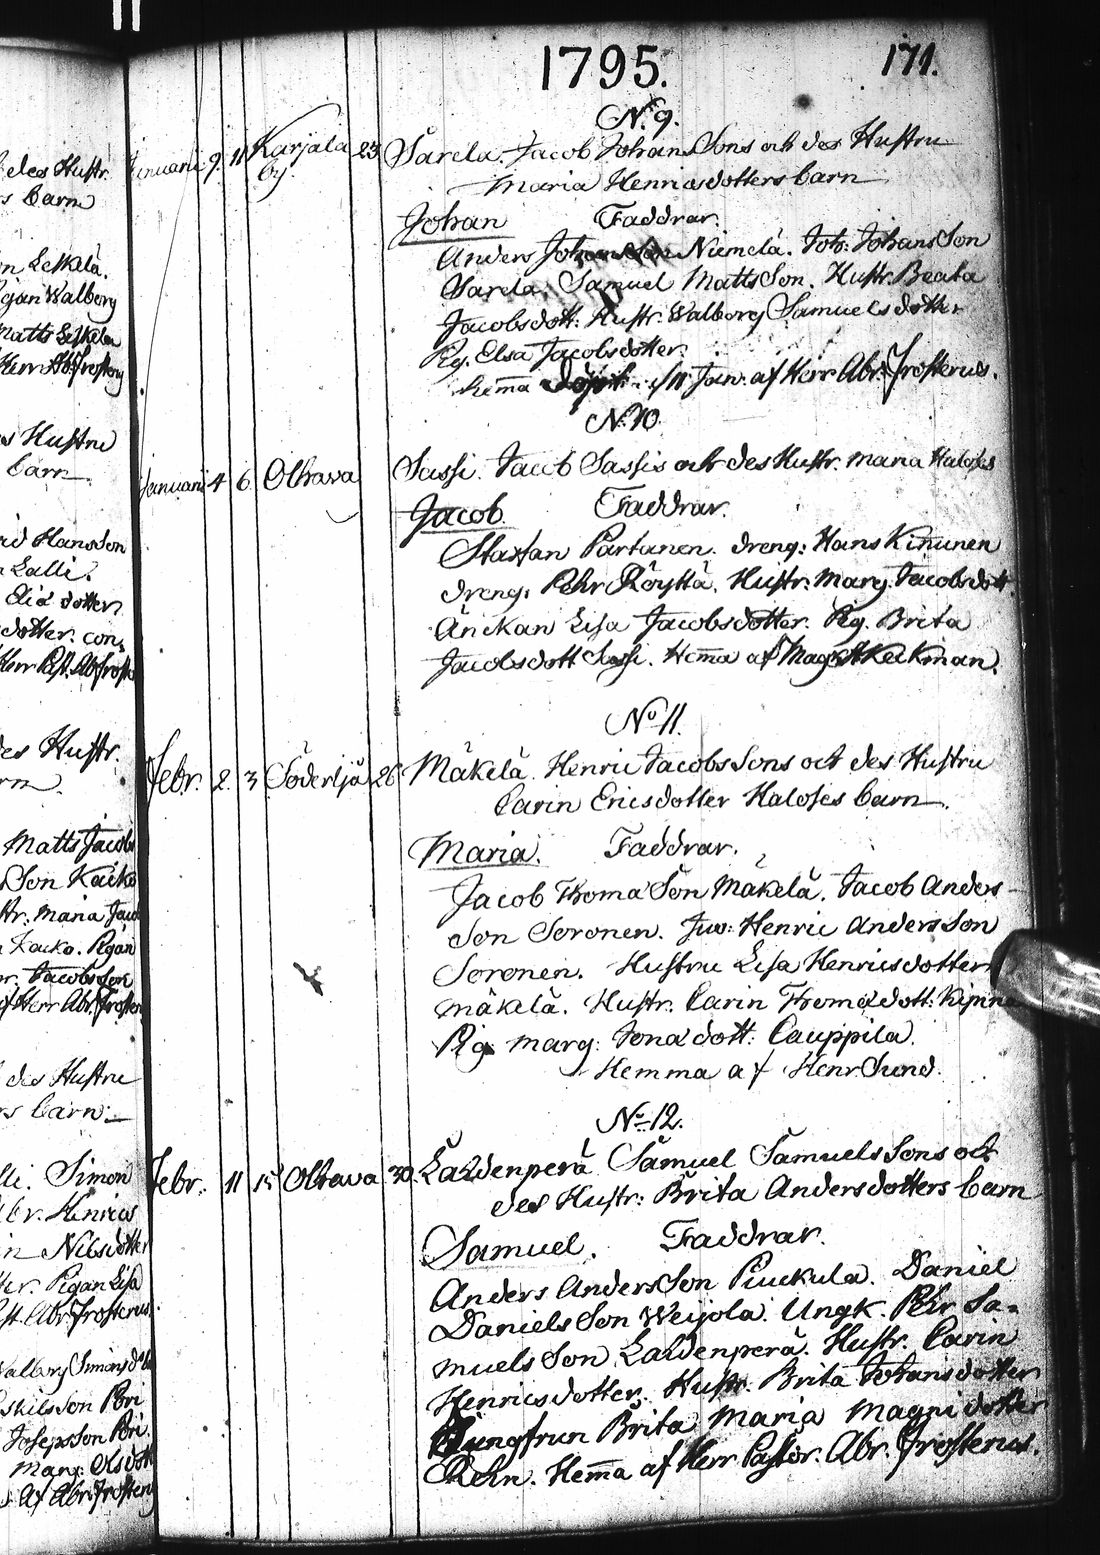 des Hustr.
s barn
n Leskelä.
igan Walborg
Matts Leskelä
Herr Ab. Frosterus
s Hustru
barn
rid Hansson
Lalli.
Eliædotter.
dotter. con.
Herr Past. Ab. Frosterus
des Hustr.
rn.
Matts Jacobs
Son Kaiko
str. Maria Jacob
Kaiko. Pigan
Jacobsson
af Herr Abr. Frosterus
des Hustru
rs barn
lli. Simon
br. Hinrics
in Nilsdotter
ter. Pigan Lisa
st. Abr. Frosterus.
Walborg Simonsdott
Eskilsson Pori
Josepsson Pori.
Marg: Olsdott
Af Abr. Frosterus
1795. 171.
No 9.
Januari 9. 11 Karjala 23 Sarela. Jacob Johans Sons och des Hustru
by. Maria Henricsdotters barn
Johan Faddrar.
Anders JohansSon Niemelä. Joh: JohansSon
Sarela. Samuel MattsSon. Hustr. Beata
Jacobsdott: Hustr. Walborg Samuelsdotter
Pig. Elsa Jacobsdotter.
hema döpt d. 11 Jan. af Herr Abr. Frosterus.
N. 10.
Januari 4 6 Olhava Sassi. Jacob Sassis och des Hustr. Maria Haloses
Jacob. Faddrar.
Staffan Partanen. dreng: Hans Kinunen
dreng: Pehr Röyttä. Hustr: Marg. Jacobsdott.
Änckan Lisa Jacobsdotter. Pig. Brita
Jacobsdott Sassi. Hema af Mag. Keckman.
No 11.
Febr. 2. 3 Söderljå 26 Mäkelä. Henric Jacobs Sons och des Hustru
Carin Ericsdotter Haloses barn.
Maria. Faddrar.
Jacob ThomaSon Mäkelä. Jacob Anders-
Son Soronen. Juv: Henric Anders Son
Soronen. Hustru Lisa Henricsdotter
Mäkelä. Hustr. Carin Thomædott: Kipina
Pig Marg: Jonædott: Cauppila.
Hemma af Henr. Sund.
No 12.
Febr. 11 15 Olhava 30 Laldenperä Samuel Samuels Sons och
des Hustr: Brita Andersdotters barn
Samuel. Faddrar.
Anders AndersSon Piuckula. Daniel
Daniels Son Weijola. Ungk. Pehr Sa-
muels Son Laldenperä. Hustr. Carin
Henricsdotter. Hustr. Brita Johansdotter
Jungfrun Brita Maria Magni dotter
Rehn. Hema af Herr Pastor. Abr. Frosterus.